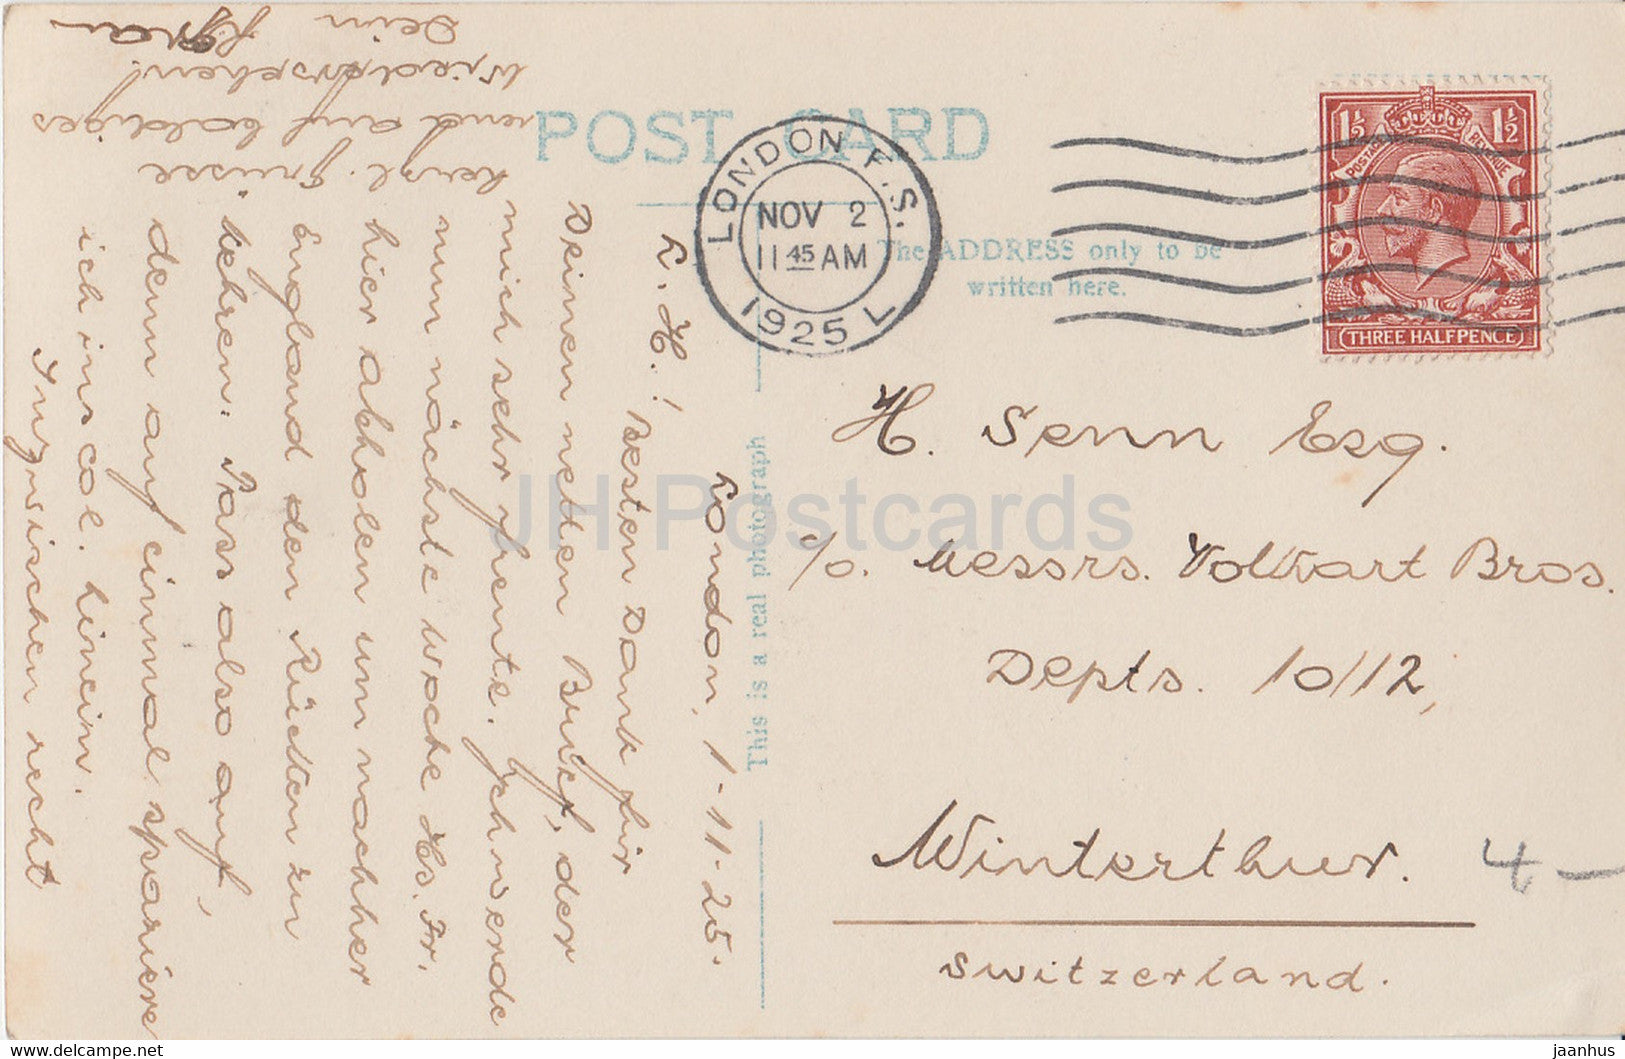 POST CARD
The ADDRESS only to be
written here.
This is a real photograph
LONDON F.S.
NOV 2
11 45 AM
1925 L
1½ 1½
POSTAGE REVENUE
THREE HALFPENCE
London, 1-11-25.
L. H.!
Besten Dank für
Deinen netten Brief, der
mich sehr freute. Ich werde
nun nächste Woche Hs. Fr.
hier abholen um nachher
England den Rücken zu
kehren. Pass also auf,
denn auf einmal spaziere
ich ins col. hinein.
Inzwischen recht
herzl. Grüsse
und auf baldiges
Wiedersehen!
Dein
H. Senn Esq.
c/o. Messrs. Volkart Bros.
Depts. 10/12,
Winterthur.
Switzerland.
4 –
JH Postcards
jaanhus